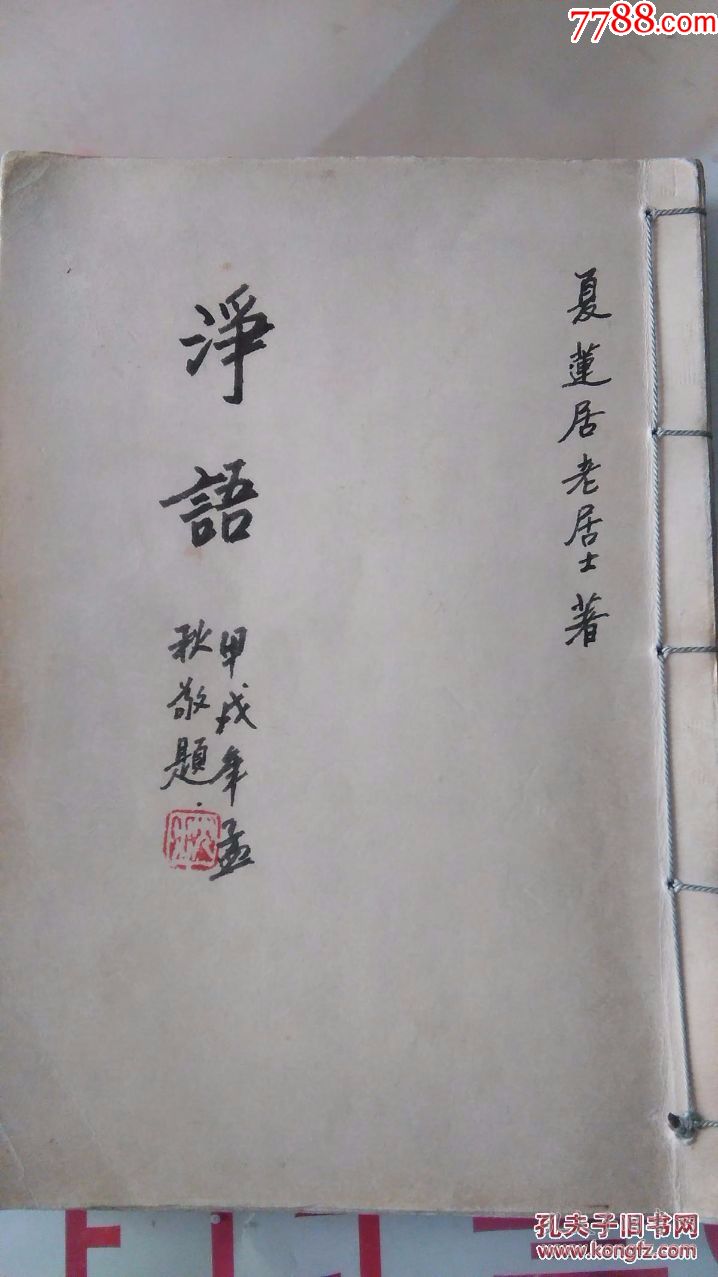 7788.com
夏蓮居老居士著
淨語
甲戌年孟
秋敬題
孔夫子旧书网
www.kongfz.com